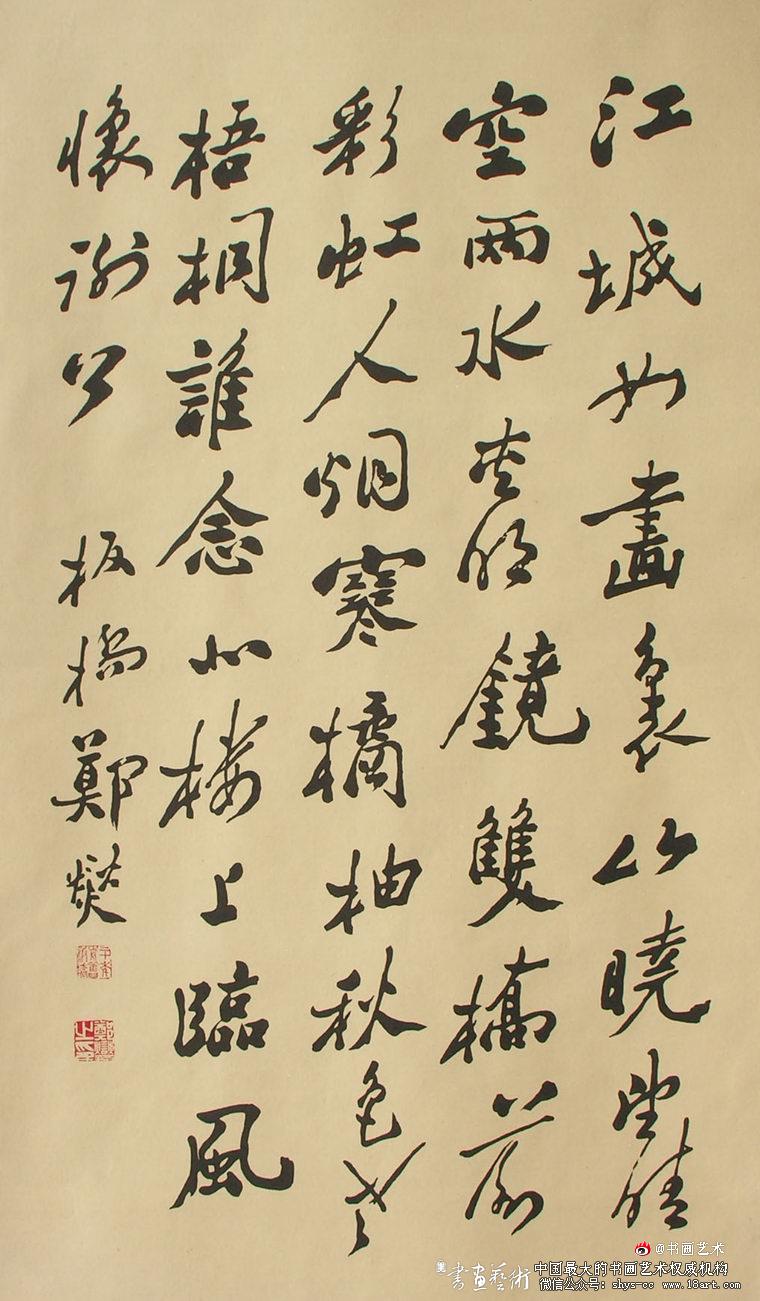 江城如畫裏山曉望晴
空兩水夾明鏡雙橋落
彩虹人烟寒橘柚秋色老
梧桐誰念北樓上臨風
懷謝公 板橋鄭燮
@书画艺术
書画藝術 中国最大的书画艺术权威机构
微信公众号: shys-cc www.18art.com